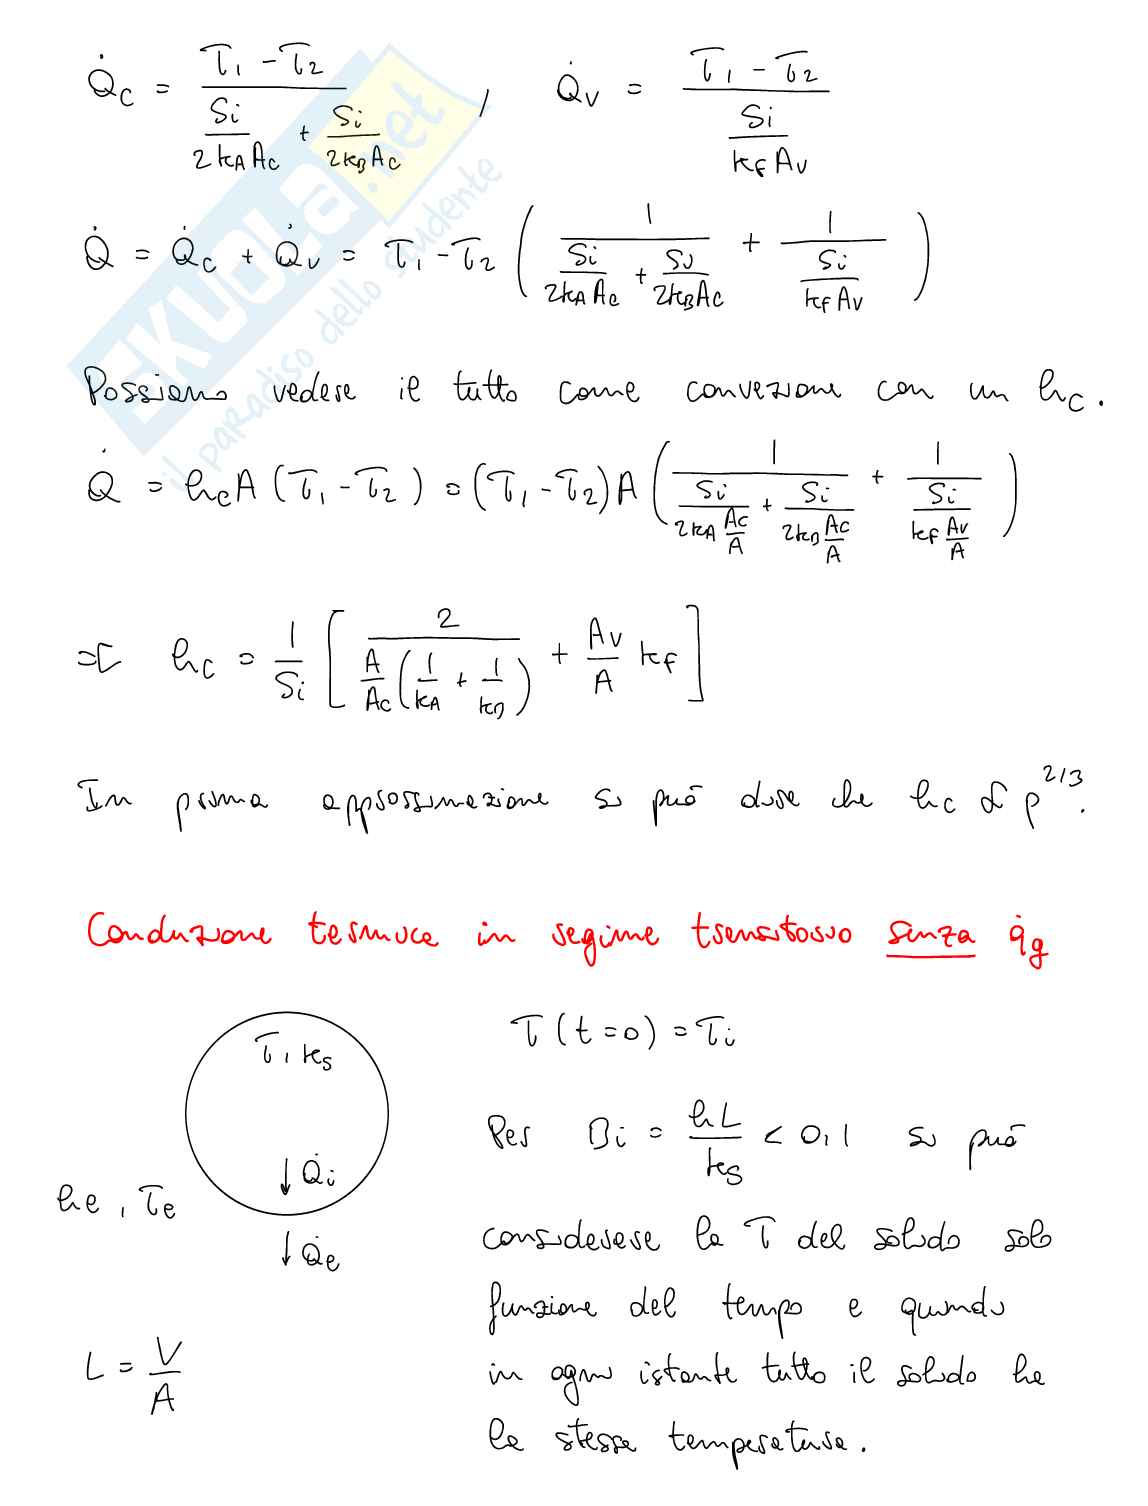 Q̇c = (T1 - T2) / (Si/(2kA Ac) + Si/(2kB Ac)) , Q̇v = (T1 - T2) / (Si/(kf Av))
Q̇ = Q̇c + Q̇v = T1 - T2 ( 1/(Si/(2kA Ac) + Si/(2kB Ac)) + 1/(Si/(kf Av)) )
Possiamo vedere il tutto come convezione con un hc.
Q̇ = hc A (T1 - T2) = (T1 - T2) A ( 1/(Si/(2kA Ac/A) + Si/(2kB Ac/A)) + 1/(Si/(kf Av/A)) )
=> hc = 1/Si [ 2/(A/Ac (1/kA + 1/kB)) + Av/A kf ]
In prima approssimazione si può dire che hc ∝ p^2/3.
Conduzione termica in regime transitorio senza q̇g
T, ks
Q̇i
he, Te
Q̇e
L = V/A
T (t=0) = Ti
Per Bi = hL/ks < 0,1 si può
considerare la T del solido solo
funzione del tempo e quindi
in ogni istante tutto il solido ha
la stessa temperatura.
SKUOLA.net
il paradiso dello studente